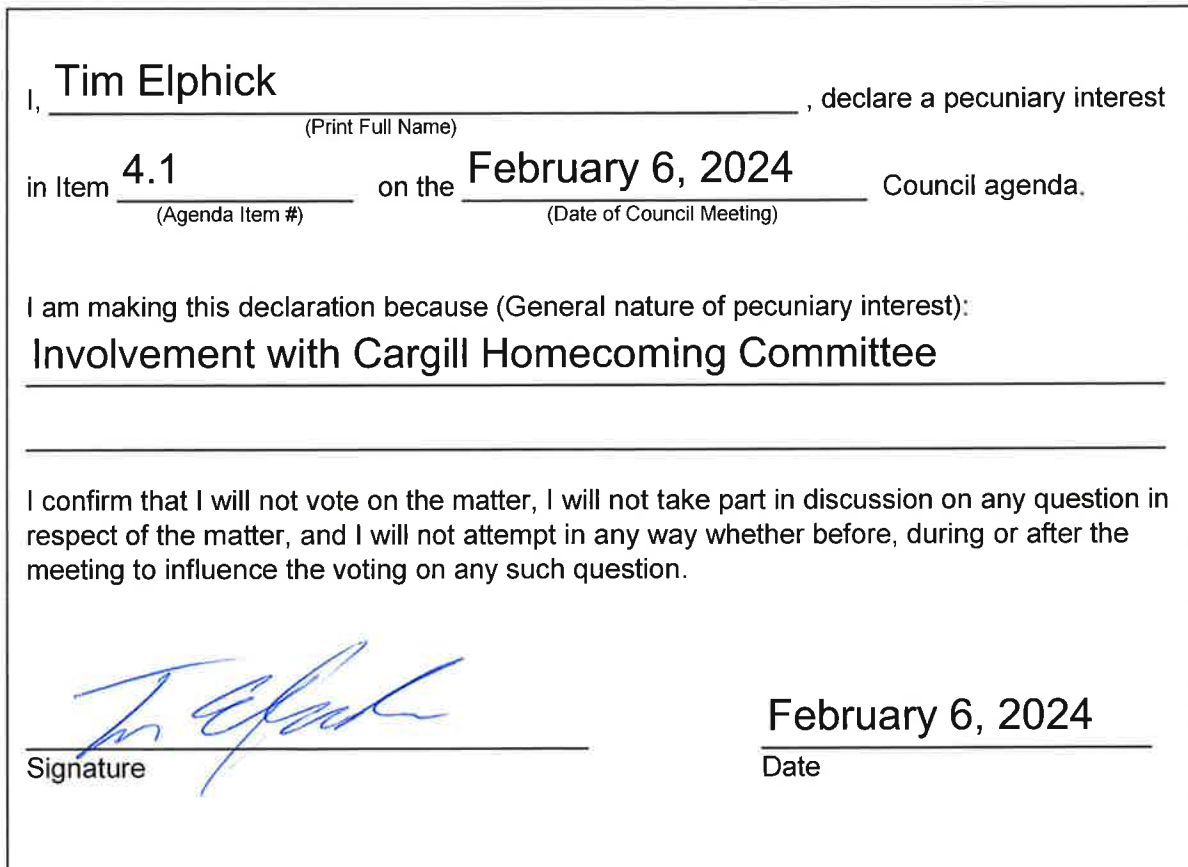 I, Tim Elphick , declare a pecuniary interest
(Print Full Name)
in Item 4.1 on the February 6, 2024 Council agenda.
(Agenda Item #) (Date of Council Meeting)
I am making this declaration because (General nature of pecuniary interest):
Involvement with Cargill Homecoming Committee
I confirm that I will not vote on the matter, I will not take part in discussion on any question in
respect of the matter, and I will not attempt in any way whether before, during or after the
meeting to influence the voting on any such question.
Tim Elphick February 6, 2024
Signature Date